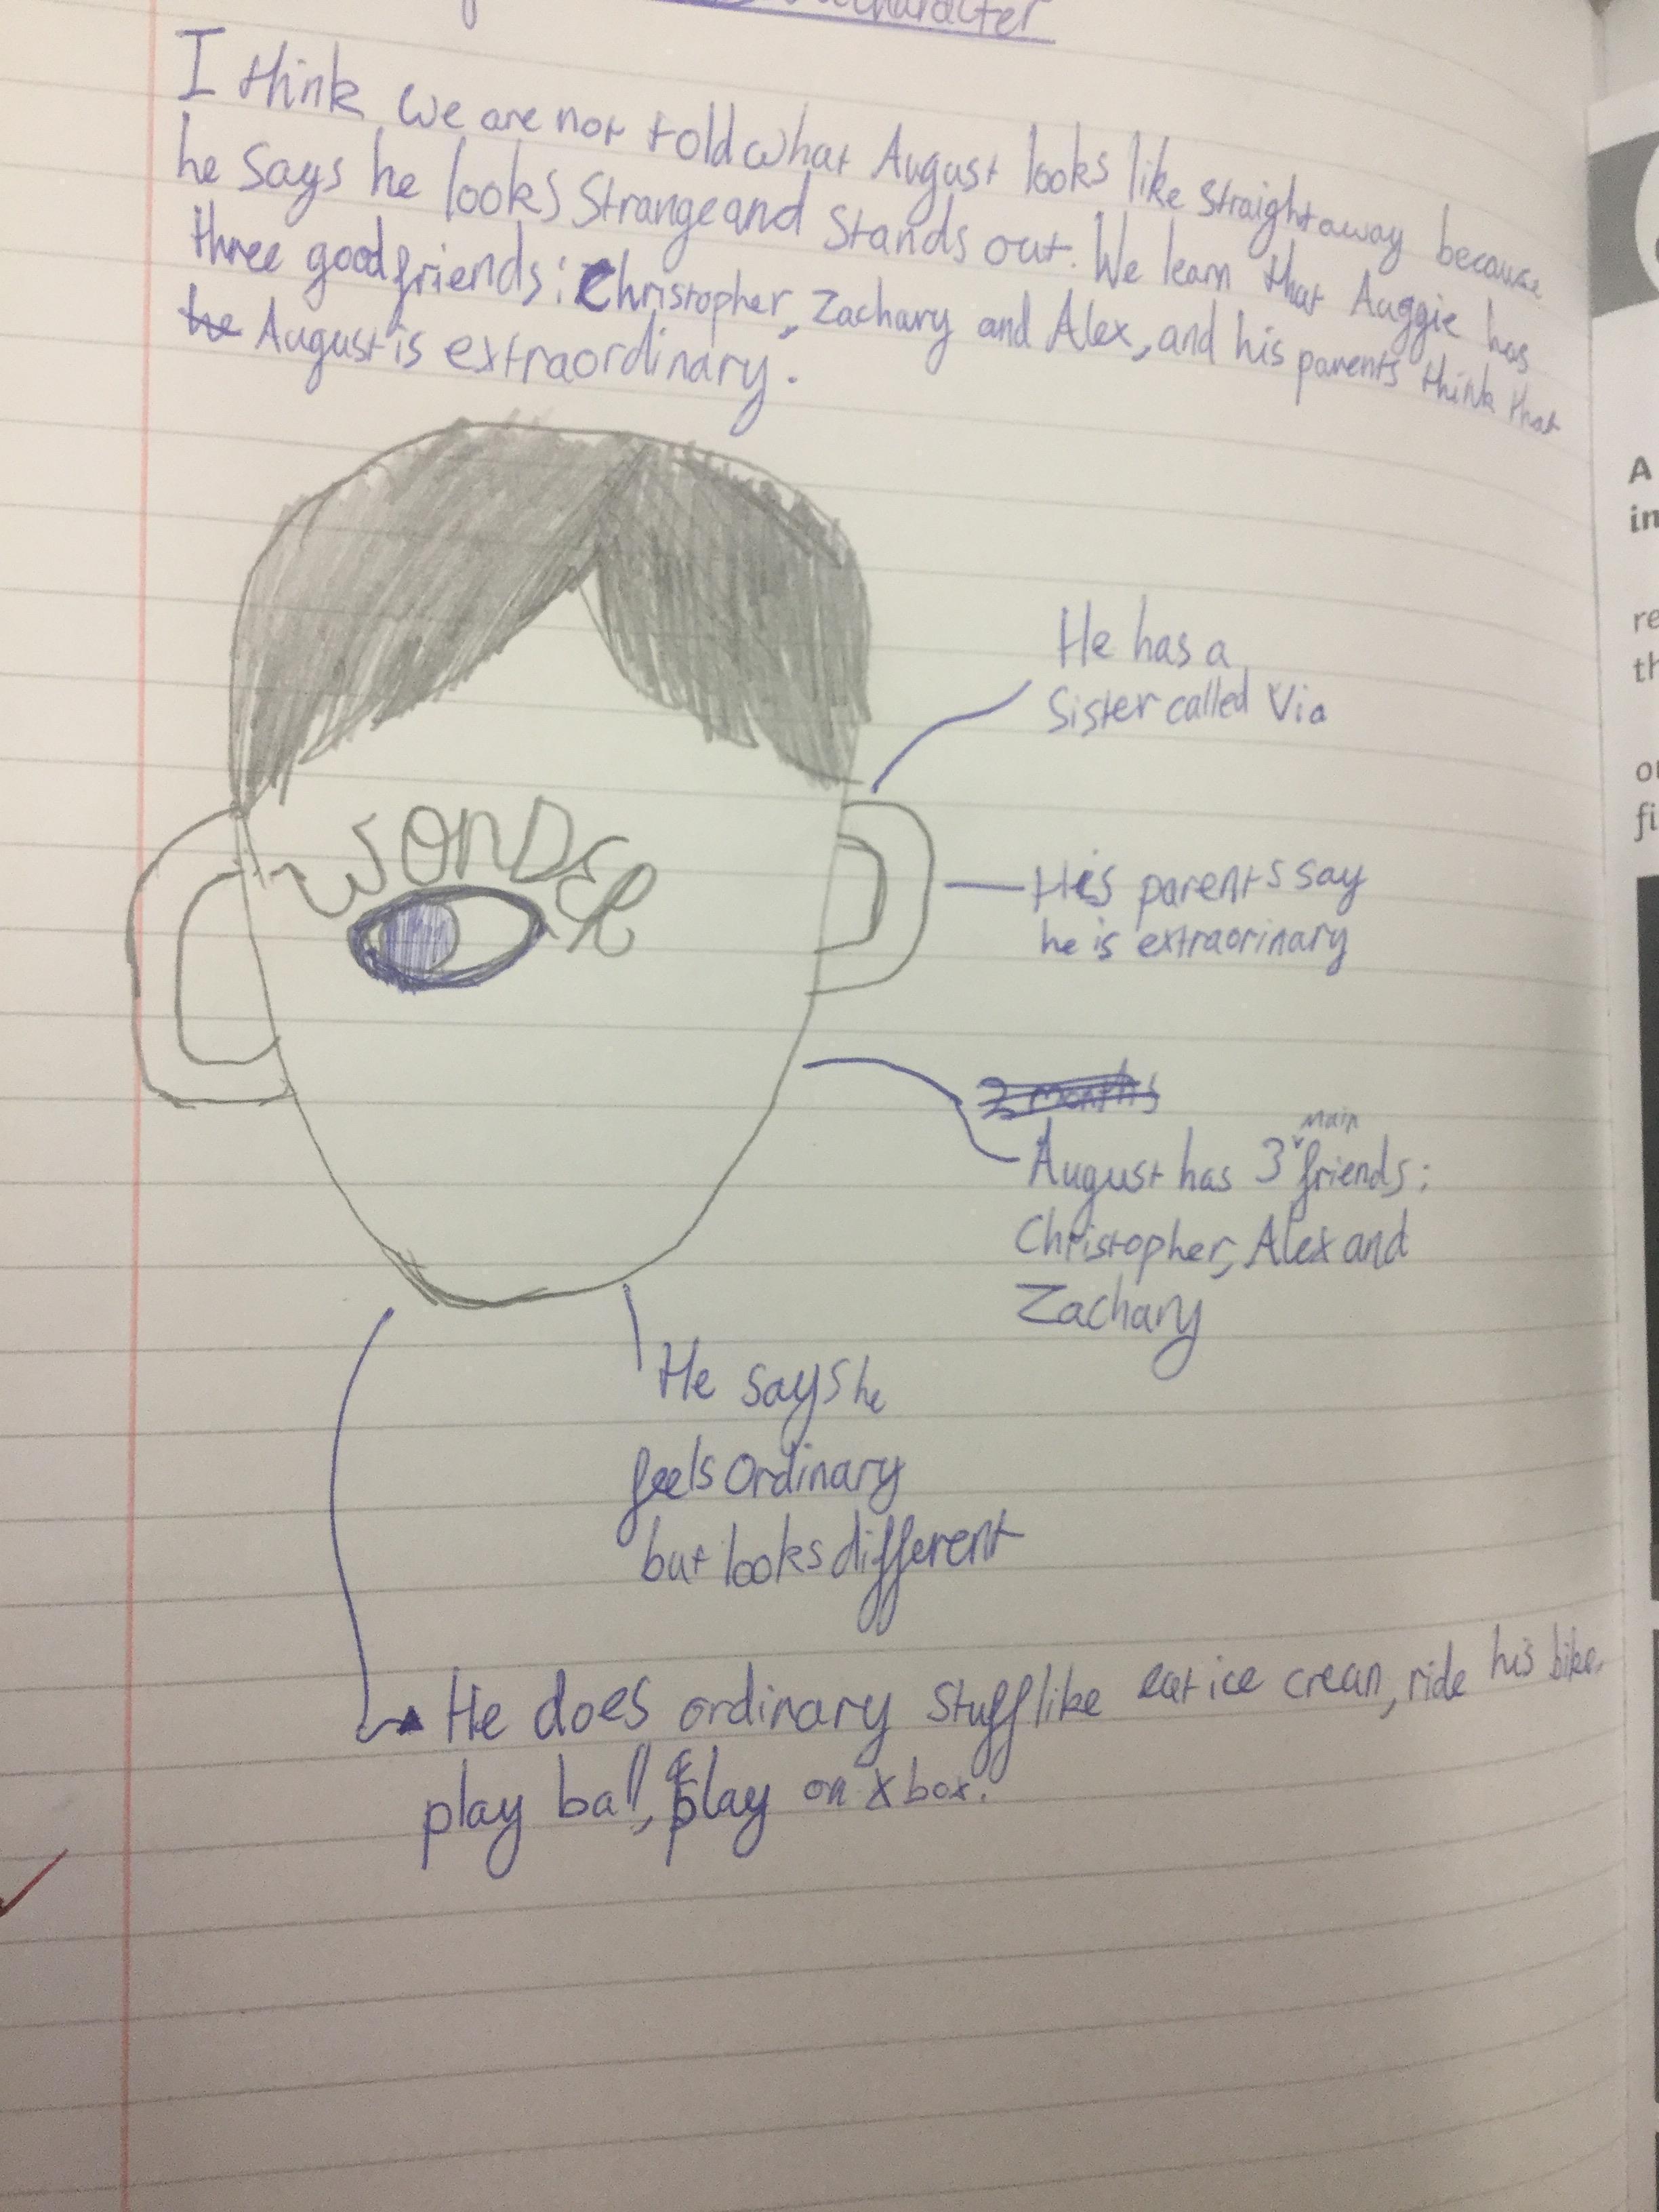 character
I think we are not told what August looks like straightaway because
he says he looks strange and stands out. We learn that Auggie has
three good friends: Christopher, Zachary and Alex, and his parents think that
he August is extraordinary.
He has a
sister called Via
WONDER
His parents say
he is extraorinary
2 months
main
August has 3 friends:
Christopher, Alex and
Zachary
He says he
feels ordinary
but looks different
He does ordinary stuff like eat ice crean, ride his bike,
play ball, play on xbox.
A
in
re
th
fi